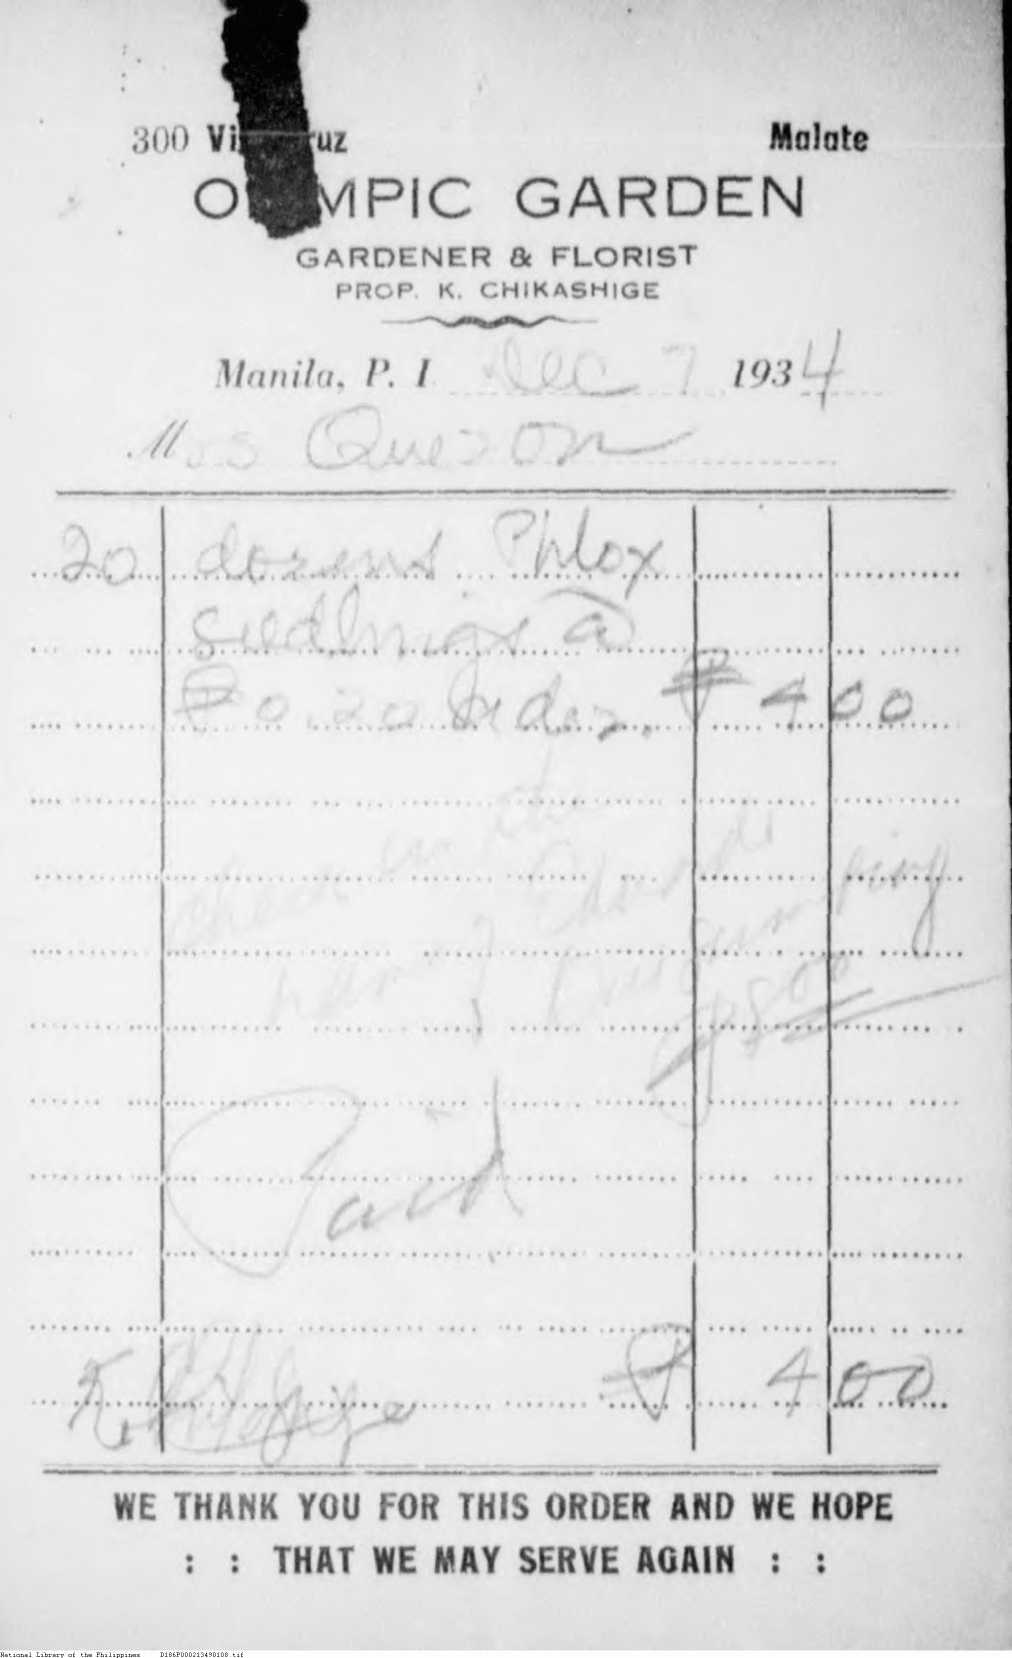 300 Vi uz Malate
O MPIC GARDEN
GARDENER & FLORIST
PROP. K. CHIKASHIGE
Manila, P. I. Dec 7 1934
Quezon
20 dozens Phlox
seedlings @
₱0.20 per doz. ₱ 4 00
check in the
name of
₱8.00
Paid
K. ₱ 4 00
WE THANK YOU FOR THIS ORDER AND WE HOPE
: : THAT WE MAY SERVE AGAIN : :
National Library of the Philippines D186P000213490108.tif